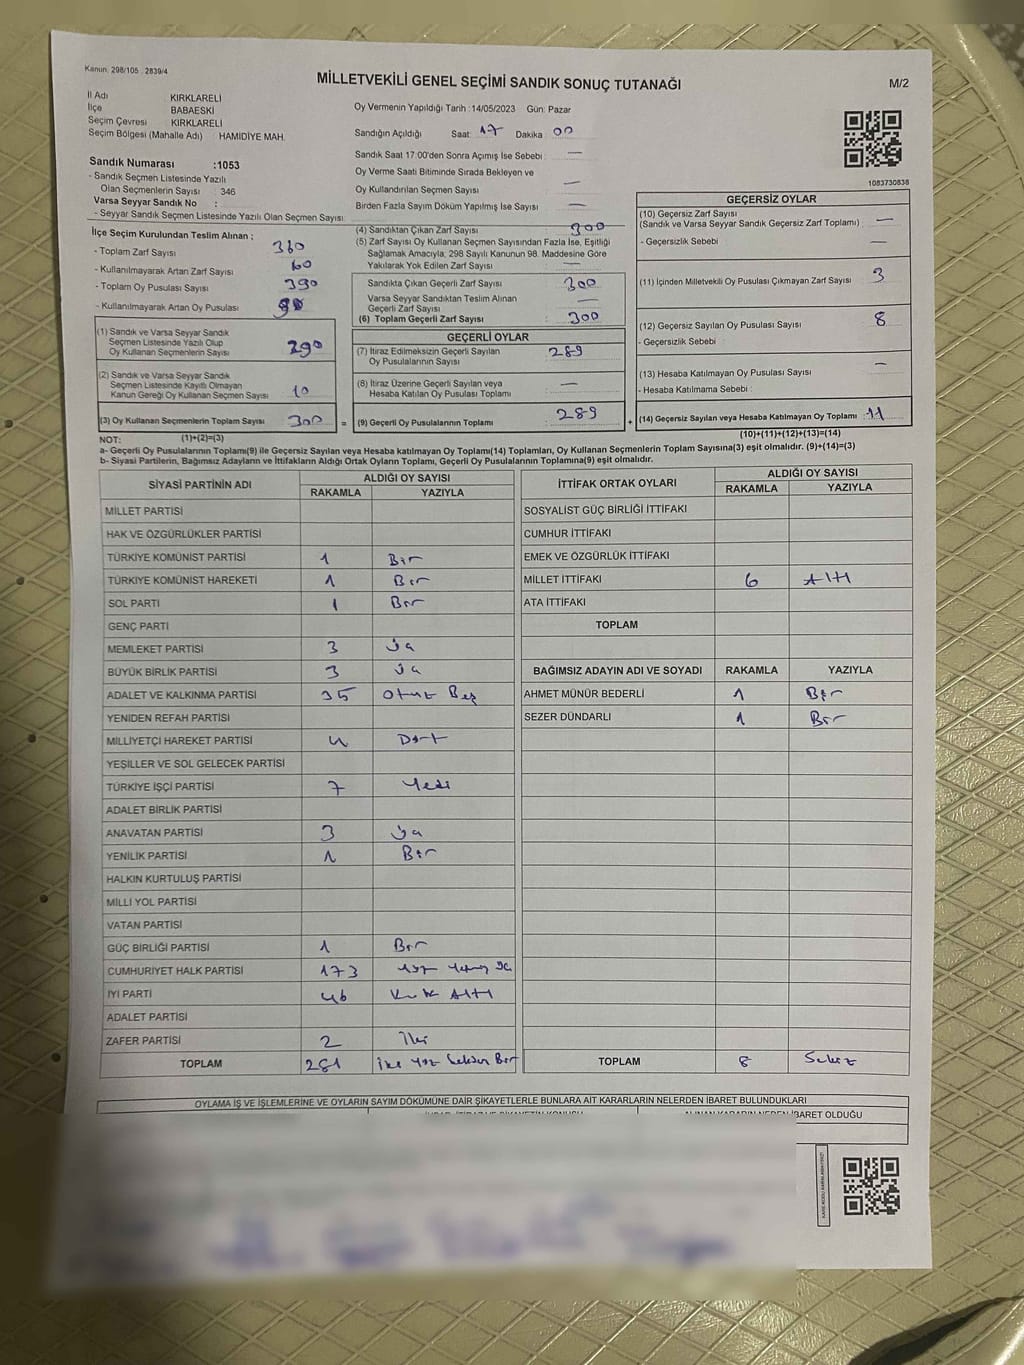 Kanun: 298/105 : 2839/4
MİLLETVEKİLİ GENEL SEÇİMİ SANDIK SONUÇ TUTANAĞI
M/2
İl Adı KIRKLARELİ
İlçe BABAESKİ
Seçim Çevresi KIRKLARELİ
Seçim Bölgesi (Mahalle Adı) HAMİDİYE MAH.
Sandık Numarası :1053
- Sandık Seçmen Listesinde Yazılı
Olan Seçmenlerin Sayısı : 346
Varsa Seyyar Sandık No :
- Seyyar Sandık Seçmen Listesinde Yazılı Olan Seçmen Sayısı:
Oy Vermenin Yapıldığı Tarih :14/05/2023 Gün: Pazar
Sandığın Açıldığı Saat: 17 Dakika 00
Sandık Saat 17:00'den Sonra Açımış İse Sebebi : —
Oy Verme Saati Bitiminde Sırada Bekleyen ve
Oy Kullandırılan Seçmen Sayısı —
Birden Fazla Sayım Döküm Yapılmış İse Sayısı : —
1083730838
İlçe Seçim Kurulundan Teslim Alınan ;
- Toplam Zarf Sayısı 360
- Kullanılmayarak Artan Zarf Sayısı 60
- Toplam Oy Pusulası Sayısı 390
- Kullanılmayarak Artan Oy Pusulası
(1) Sandık ve Varsa Seyyar Sandık
Seçmen Listesinde Yazılı Olup
Oy Kullanan Seçmenlerin Sayısı 290
(2) Sandık ve Varsa Seyyar Sandık
Seçmen Listesinde Kayıtlı Olmayan
Kanun Gereği Oy Kullanan Seçmen Sayısı 10
(3) Oy Kullanan Seçmenlerin Toplam Sayısı 300 =
(4) Sandıktan Çıkan Zarf Sayısı : 300
(5) Zarf Sayısı Oy Kullanan Seçmen Sayısından Fazla İse, Eşitliği
Sağlamak Amacıyla; 298 Sayılı Kanunun 98. Maddesine Göre
Yakılarak Yok Edilen Zarf Sayısı : —
Sandıkta Çıkan Geçerli Zarf Sayısı : 300
Varsa Seyyar Sandıktan Teslim Alınan
Geçerli Zarf Sayısı : —
(6) Toplam Geçerli Zarf Sayısı : 300
GEÇERLİ OYLAR
(7) İtiraz Edilmeksizin Geçerli Sayılan
Oy Pusulalarının Sayısı : 289
(8) İtiraz Üzerine Geçerli Sayılan veya
Hesaba Katılan Oy Pusulası Toplamı : —
(9) Geçerli Oy Pusulalarının Toplamı : 289 +
GEÇERSİZ OYLAR
(10) Geçersiz Zarf Sayısı
(Sandık ve Varsa Seyyar Sandık Geçersiz Zarf Toplamı) : —
- Geçersizlik Sebebi : —
(11) İçinden Milletvekili Oy Pusulası Çıkmayan Zarf Sayısı : 3
(12) Geçersiz Sayılan Oy Pusulası Sayısı : 8
- Geçersizlik Sebebi :
(13) Hesaba Katılmayan Oy Pusulası Sayısı : —
- Hesaba Katılmama Sebebi :
(14) Geçersiz Sayılan veya Hesaba Katılmayan Oy Toplamı : 11
(1)+(2)=(3)
(10)+(11)+(12)+(13)=(14)
NOT:
a- Geçerli Oy Pusulalarının Toplamı(9) ile Geçersiz Sayılan veya Hesaba katılmayan Oy Toplamı(14) Toplamları, Oy Kullanan Seçmenlerin Toplam Sayısına(3) eşit olmalıdır. (9)+(14)=(3)
b- Siyasi Partilerin, Bağımsız Adayların ve İttifakların Aldığı Ortak Oyların Toplamı, Geçerli Oy Pusulalarının Toplamına(9) eşit olmalıdır.
SİYASİ PARTİNİN ADI ALDIĞI OY SAYISI
RAKAMLA YAZIYLA
MİLLET PARTİSİ
HAK VE ÖZGÜRLÜKLER PARTİSİ
TÜRKİYE KOMÜNİST PARTİSİ 1 Bir
TÜRKİYE KOMÜNİST HAREKETİ 1 Bir
SOL PARTİ 1 Bir
GENÇ PARTİ
MEMLEKET PARTİSİ 3 üç
BÜYÜK BİRLİK PARTİSİ 3 üç
ADALET VE KALKINMA PARTİSİ 35 Otuz Beş
YENİDEN REFAH PARTİSİ
MİLLİYETÇİ HAREKET PARTİSİ 4 Dört
YEŞİLLER VE SOL GELECEK PARTİSİ
TÜRKİYE İŞÇİ PARTİSİ 7 Yedi
ADALET BİRLİK PARTİSİ
ANAVATAN PARTİSİ 3 üç
YENİLİK PARTİSİ 1 Bir
HALKIN KURTULUŞ PARTİSİ
MİLLİ YOL PARTİSİ
VATAN PARTİSİ
GÜÇ BİRLİĞİ PARTİSİ 1 Bir
CUMHURİYET HALK PARTİSİ 173 Yüz Yetmiş üç
İYİ PARTİ 46 Kırk Altı
ADALET PARTİSİ
ZAFER PARTİSİ 2 İki
TOPLAM 281 İki Yüz Seksen Bir
İTTİFAK ORTAK OYLARI ALDIĞI OY SAYISI
RAKAMLA YAZIYLA
SOSYALİST GÜÇ BİRLİĞİ İTTİFAKI
CUMHUR İTTİFAKI
EMEK VE ÖZGÜRLÜK İTTİFAKI
MİLLET İTTİFAKI 6 Altı
ATA İTTİFAKI
TOPLAM
BAĞIMSIZ ADAYIN ADI VE SOYADI RAKAMLA YAZIYLA
AHMET MÜNÜR BEDERLİ 1 Bir
SEZER DÜNDARLI 1 Bir
TOPLAM 8 Sekiz
OYLAMA İŞ VE İŞLEMLERİNE VE OYLARIN SAYIM DÖKÜMÜNE DAİR ŞİKAYETLERLE BUNLARA AİT KARARLARIN NELERDEN İBARET BULUNDUKLARI
ALINAN KARARIN NEDEN İBARET OLDUĞU